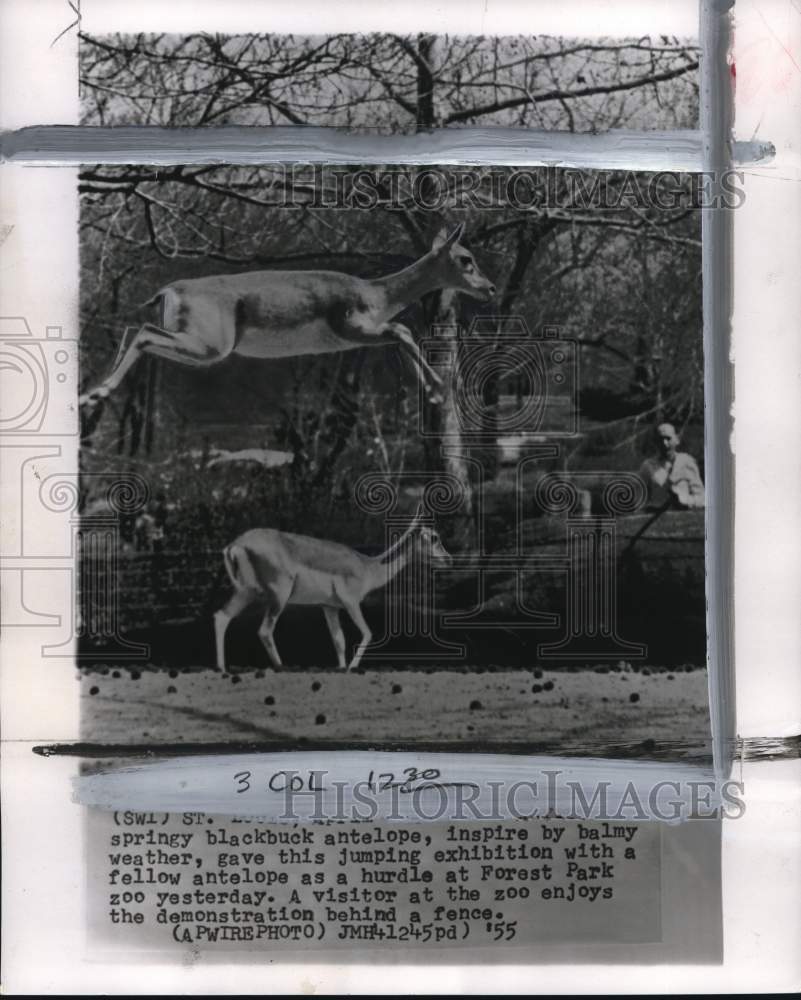 HISTORIC IMAGES
3 COL 1230
HISTORIC IMAGES
(SW1) ST. LOUIS, APRIL
springy blackbuck antelope, inspire by balmy
weather, gave this jumping exhibition with a
fellow antelope as a hurdle at Forest Park
zoo yesterday. A visitor at the zoo enjoys
the demonstration behind a fence.
(APWIREPHOTO) JMH41245pd) '55